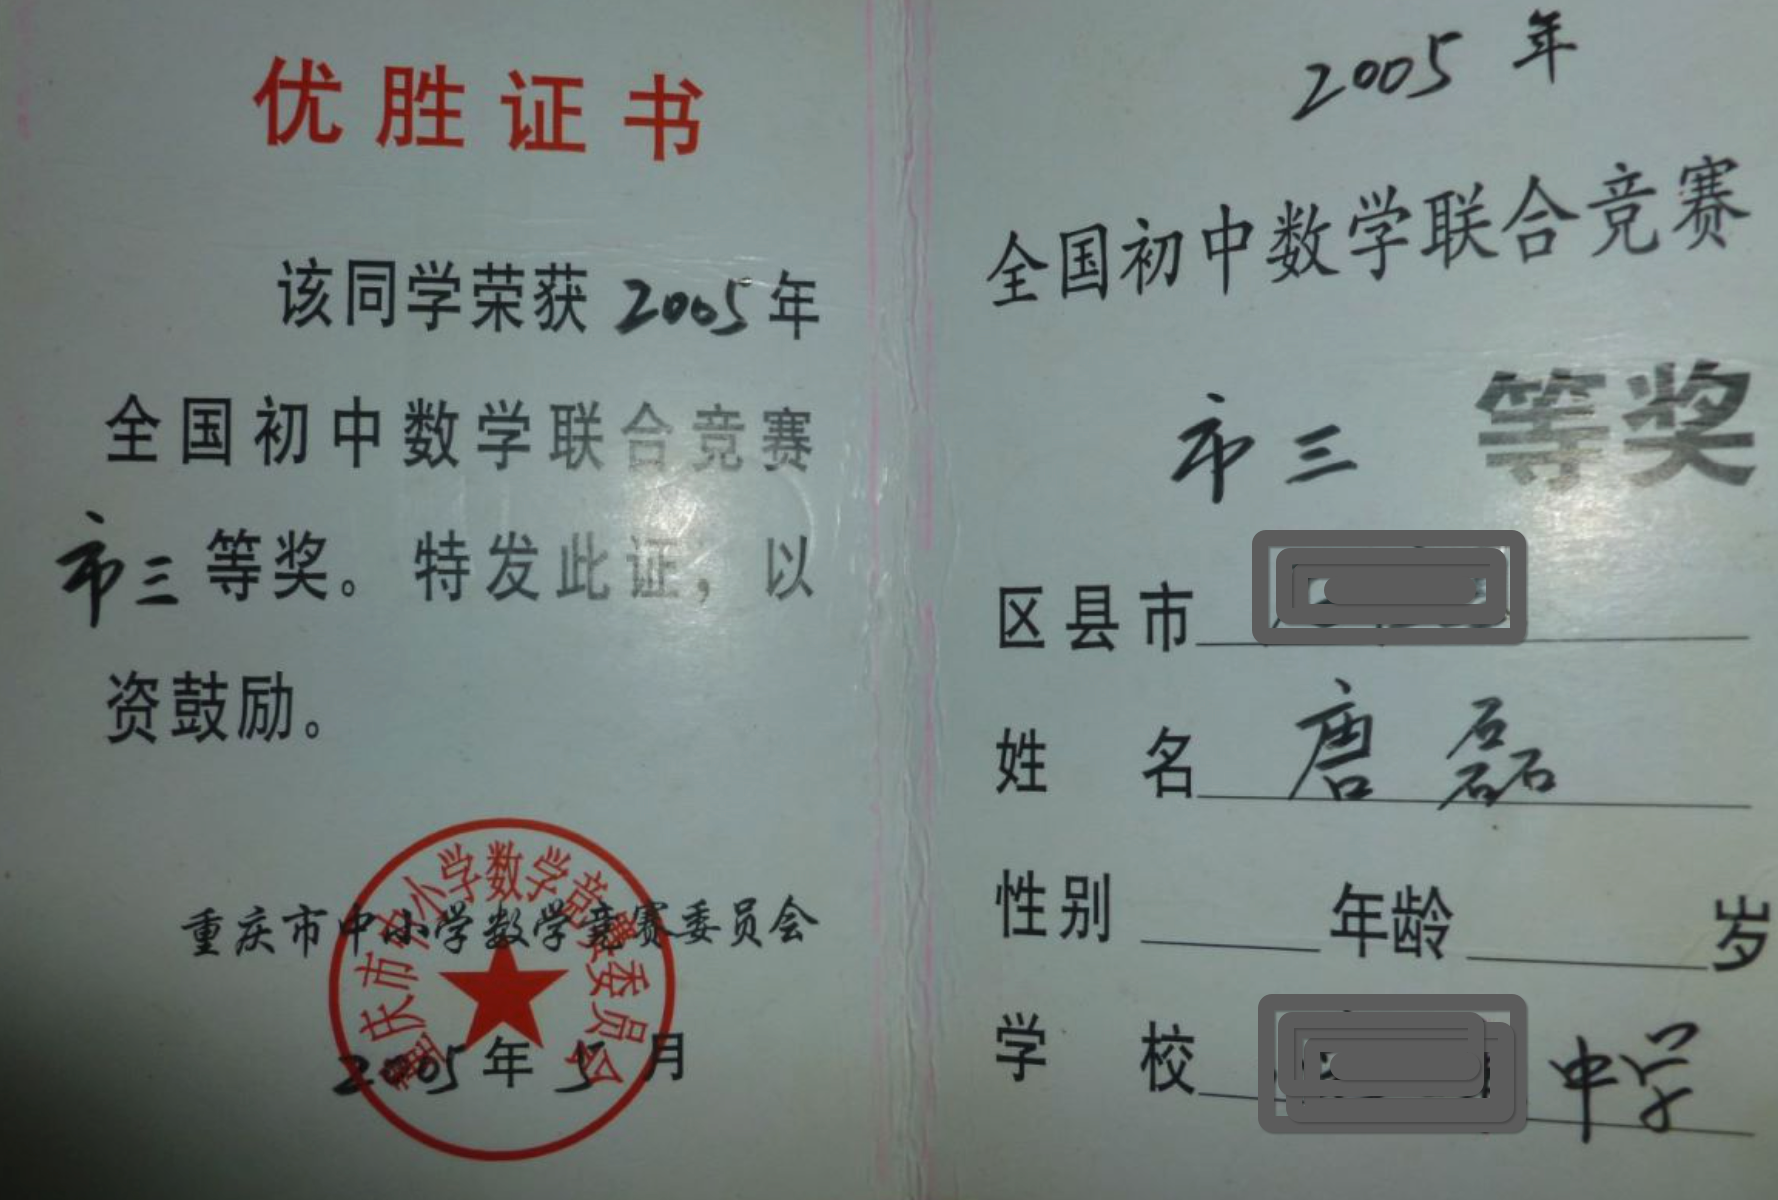 优胜证书
该同学荣获2005年
全国初中数学联合竞赛
市三等奖。特发此证，以
资鼓励。
重庆市中小学数学竞赛委员会
重庆市中小学数学竞赛委员会
2005年5月
2005年
全国初中数学联合竞赛
市三等奖
区县市
姓名 唐磊
性别 年龄 岁
学校 中学